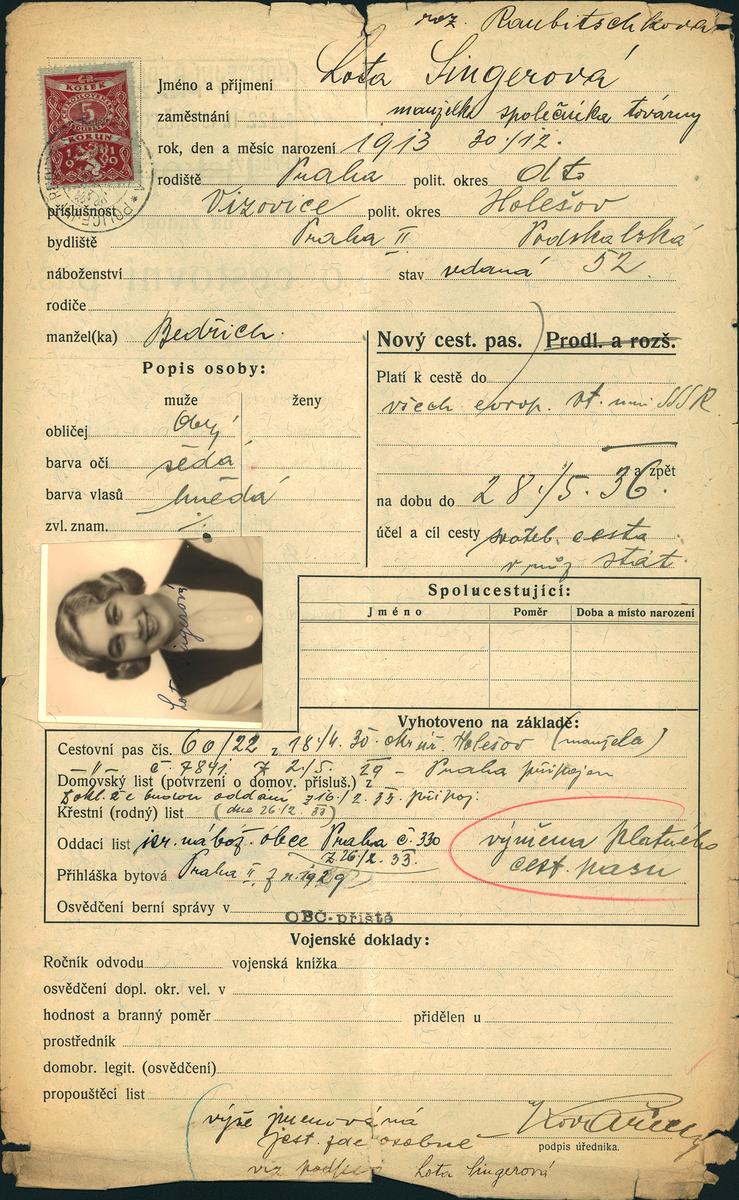 roz. Raubitschková
ČR
KOLEK
5
KORUN
1919
Jméno a příjmení Lota Singerová
zaměstnání manželka společníka továrny
rok, den a měsíc narození 1913 30/12.
rodiště Praha polit. okres dto
příslušnost Vizovice polit. okres Holešov
bydliště Praha II Podskalská
náboženství stav vdaná 52.
rodiče
manžel(ka) Bedřich.
Nový cest. pas. Prodl. a rozš.
Popis osoby:
Platí k cestě do
muže ženy
všech evrop. st. mimo SSSR
obličej
barva očí šedá
a zpět
barva vlasů hnědá
na dobu do 28./5. 36.
zvl. znam. %
účel a cíl cesty svateb. cesta
stát
Lota Singerová
Spolucestující:
Jméno Poměr Doba a místo narození
Vyhotoveno na základě:
Cestovní pas čís. 60/22 z 18/4. 30. okr. úř. Holešov (manžela)
-"- č. 7841 z 2/5. 29 - Praha připojen
Domovský list (potvrzení o domov. přísluš.) z
z 16/2. 33. připoj.
Křestní (rodný) list (dne 26/2. 33)
Oddací list isr. nábož. obce Praha č. 330
z 26/2. 33.
výměna platného
cest. pasu
Přihláška bytová Praha II. z r. 1929
Osvědčení berní správy v
OBC-příště
Vojenské doklady:
Ročník odvodu vojenská knížka
osvědčení dopl. okr. vel. v
hodnost a branný poměr přidělen u
prostředník
domobr. legit. (osvědčení)
propouštěcí list
výše jmenovaná
jest zde osobně
podpis úředníka.
viz podpis Lota Singerová